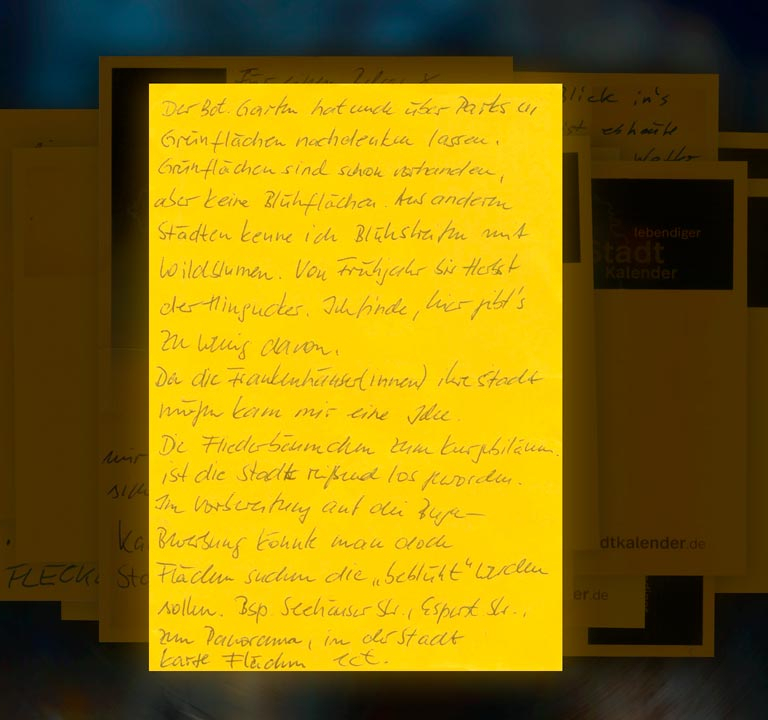 Der Bot. Garten hat mich über Parks u
Grünflächen nachdenken lassen.
Grünflächen sind schon vorhanden,
aber keine Blühflächen. Aus anderen
Städten kenne ich Blühstreifen mit
Wildblumen. Von Frühjahr bis Herbst
der Hingucker. Ich finde, hier gibt's
zu wenig davon.
Da die Frankenhäuser(innen) ihre Stadt
mögen kam mir eine Idee.
Die Fliederbäumchen zum Kurjubiläum
ist die Stadt reißend los geworden.
Im Vorbereitung auf die Buga-
Bewerbung könnte man doch
Flächen suchen die „beblüht" werden
sollen. Bsp. Seehäuser Str., Esperst. Str.,
zum Panorama, in der Stadt
karge Flächen ect.
Blick in's
ist es heute
Wetter
lebendiger
Stadt
Kalender
mir
sich
FLECK
dtkalender.de
er.de